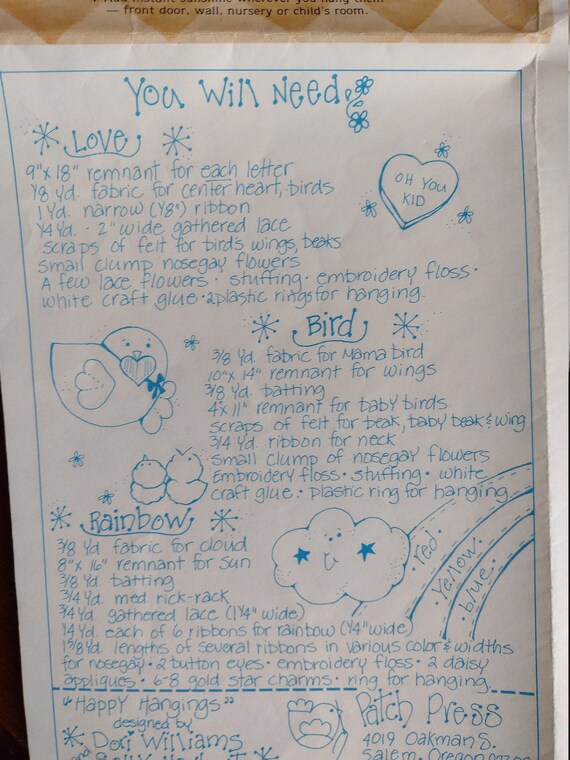 — front door, wall, nursery or child's room.
You Will Need
Love
9"x 18" remnant for each letter
1/8 Yd. fabric for center heart, birds
1 Yd. narrow (1/8") ribbon
1/4 Yd. - 2" wide gathered lace
scraps of felt for birds wings, beaks
small clump nosegay flowers
A few lace flowers · stuffing · embroidery floss ·
white craft glue · 2 plastic rings for hanging.
OH YOU
KID
Bird
3/8 Yd. fabric for Mama bird
10"x 14" remnant for wings
3/8 Yd. batting
4"x 11" remnant for baby birds
scraps of felt for beak, baby beak & wing
3/4 Yd. ribbon for neck
small clump of nosegay flowers
Embroidery floss · stuffing · white
craft glue · plastic ring for hanging
Rainbow
3/8 Yd fabric for cloud
8"x 16" remnant for sun
3/8 Yd batting
3/4 Yd. med. rick-rack
3/4 Yd. gathered lace (1 1/4" wide)
1/4 Yd. each of 6 ribbons for rainbow (1/4" wide)
1 5/8 Yd. lengths of several ribbons in various colors & widths
for nosegay · 2 button eyes · embroidery floss · 2 daisy
appliques · 6-8 gold star charms · ring for hanging
·red·
·Yellow·
·blue·
"Happy Hangings"
designed by
Dori Williams
and
Patch Press
4019 Oakman S.
Salem, Oregon